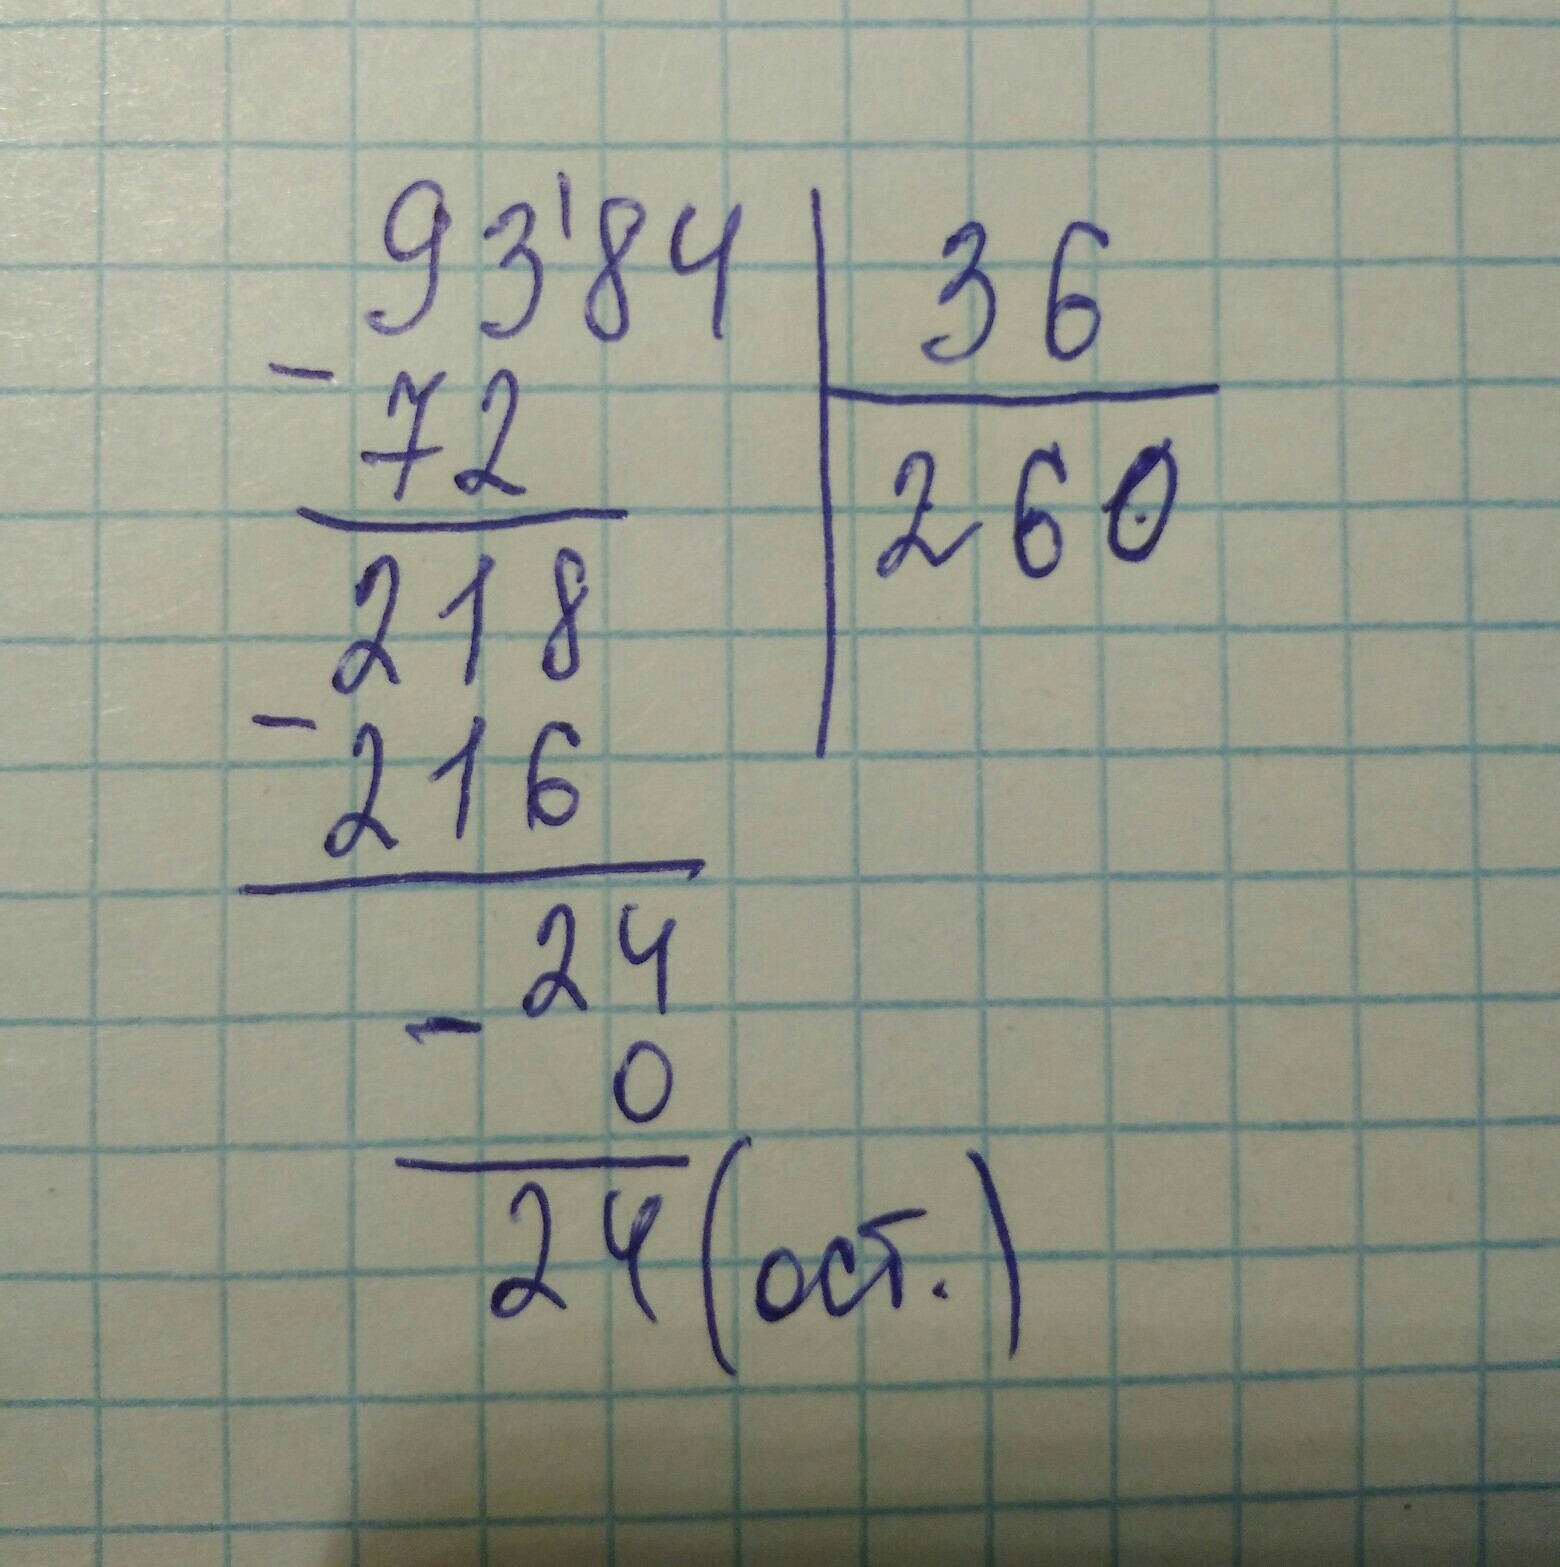 93'84 36
- 72 260
218
- 216
24
- 0
24 (ост.)